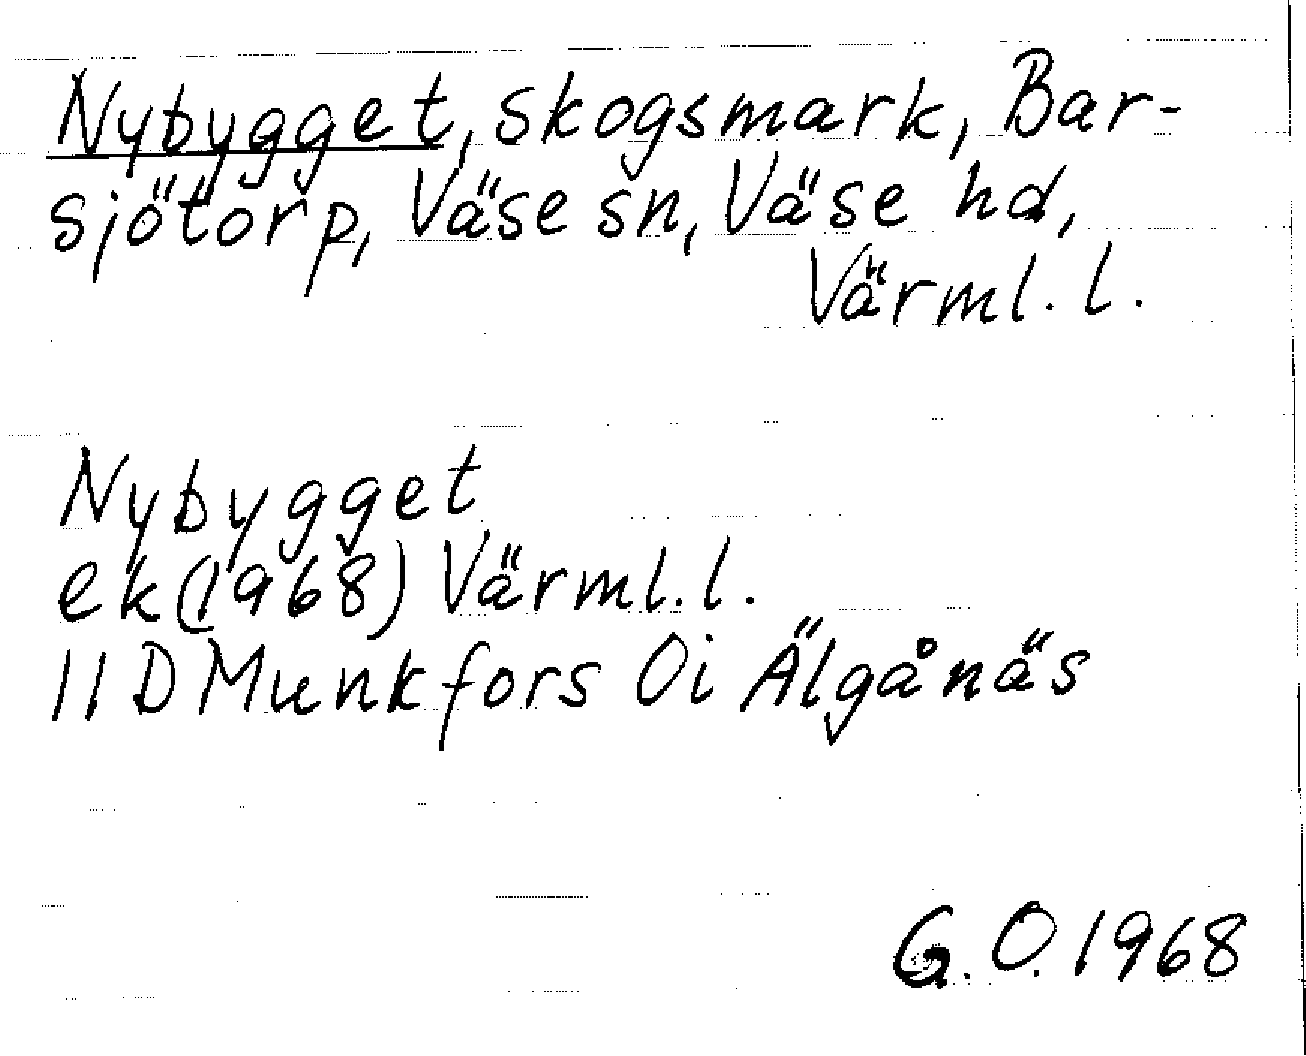 Nybygget, skogsmark, Bar-
sjötorp, Väse sn, Väse hd,
Värml. l.
Nybygget
ek (1968) Värml. l.
11D Munkfors 0i Älgånäs
G. O. 1968